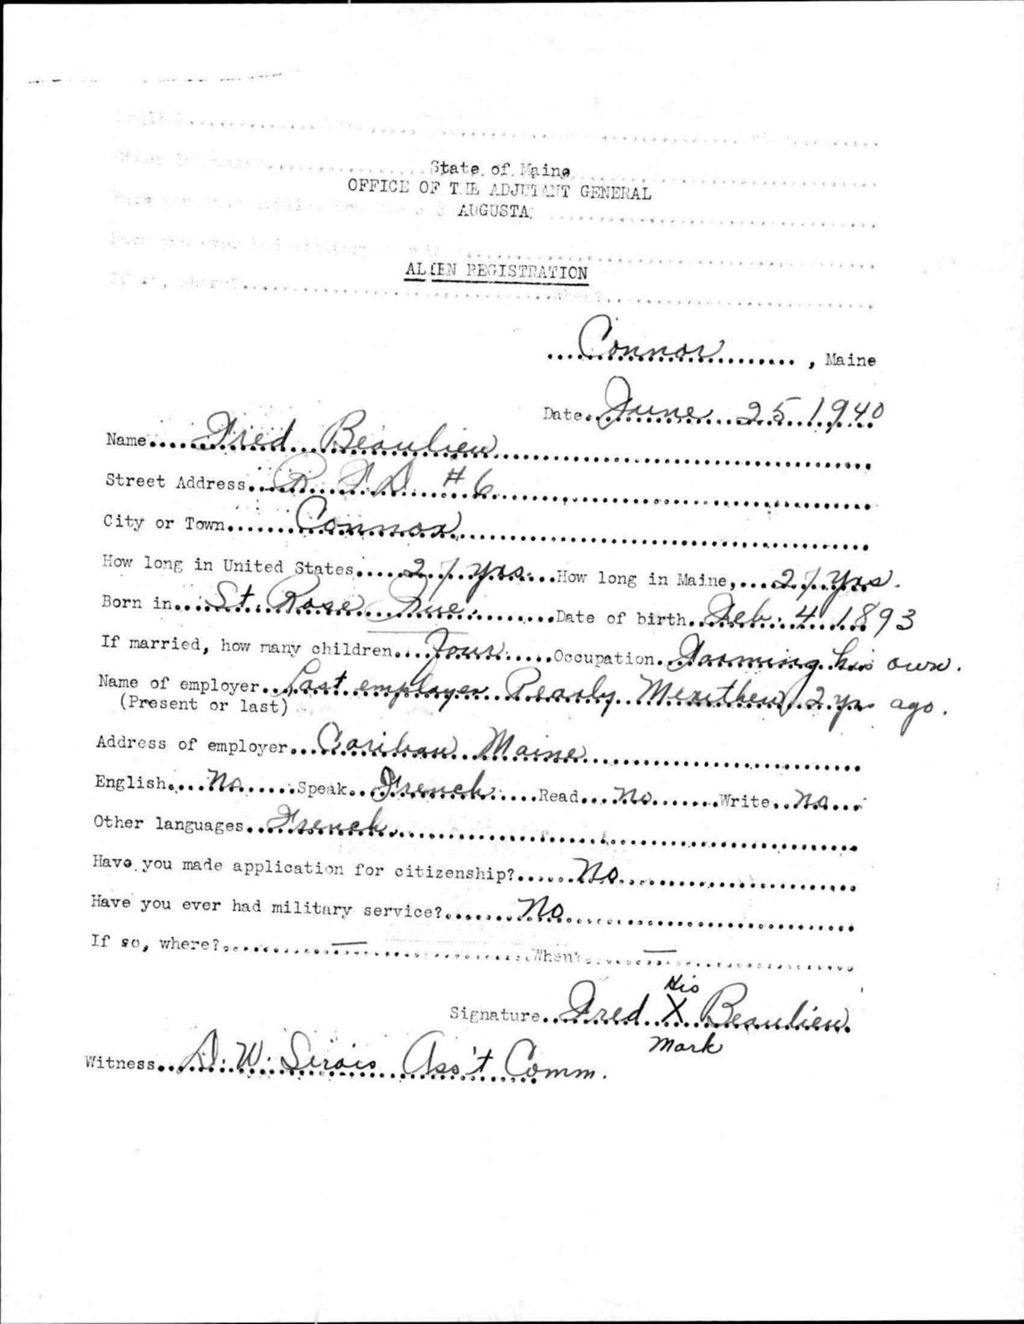 State of Maine
OFFICE OF THE ADJUTANT GENERAL
AUGUSTA
ALIEN REGISTRATION
Connor, Maine
Date June 25 1940
Name Fred Beaulieu
Street Address R.F.D #6
City or Town Connor
How long in United States 27 yrs How long in Maine, 27 yrs.
Born in St. Rose Que. Date of birth Feb. 4, 1893
If married, how many children Four Occupation Farming his own.
Name of employer Last employer Pearly Merithew 2 yrs ago.
(Present or last)
Address of employer Caribou Maine
English No Speak French Read No Write No
Other languages French
Have you made application for citizenship? No
Have you ever had military service? No
If so, where? — When? —
His
Signature Fred X Beaulieu
Mark
Witness D. W. Sirois Ass't Comm.